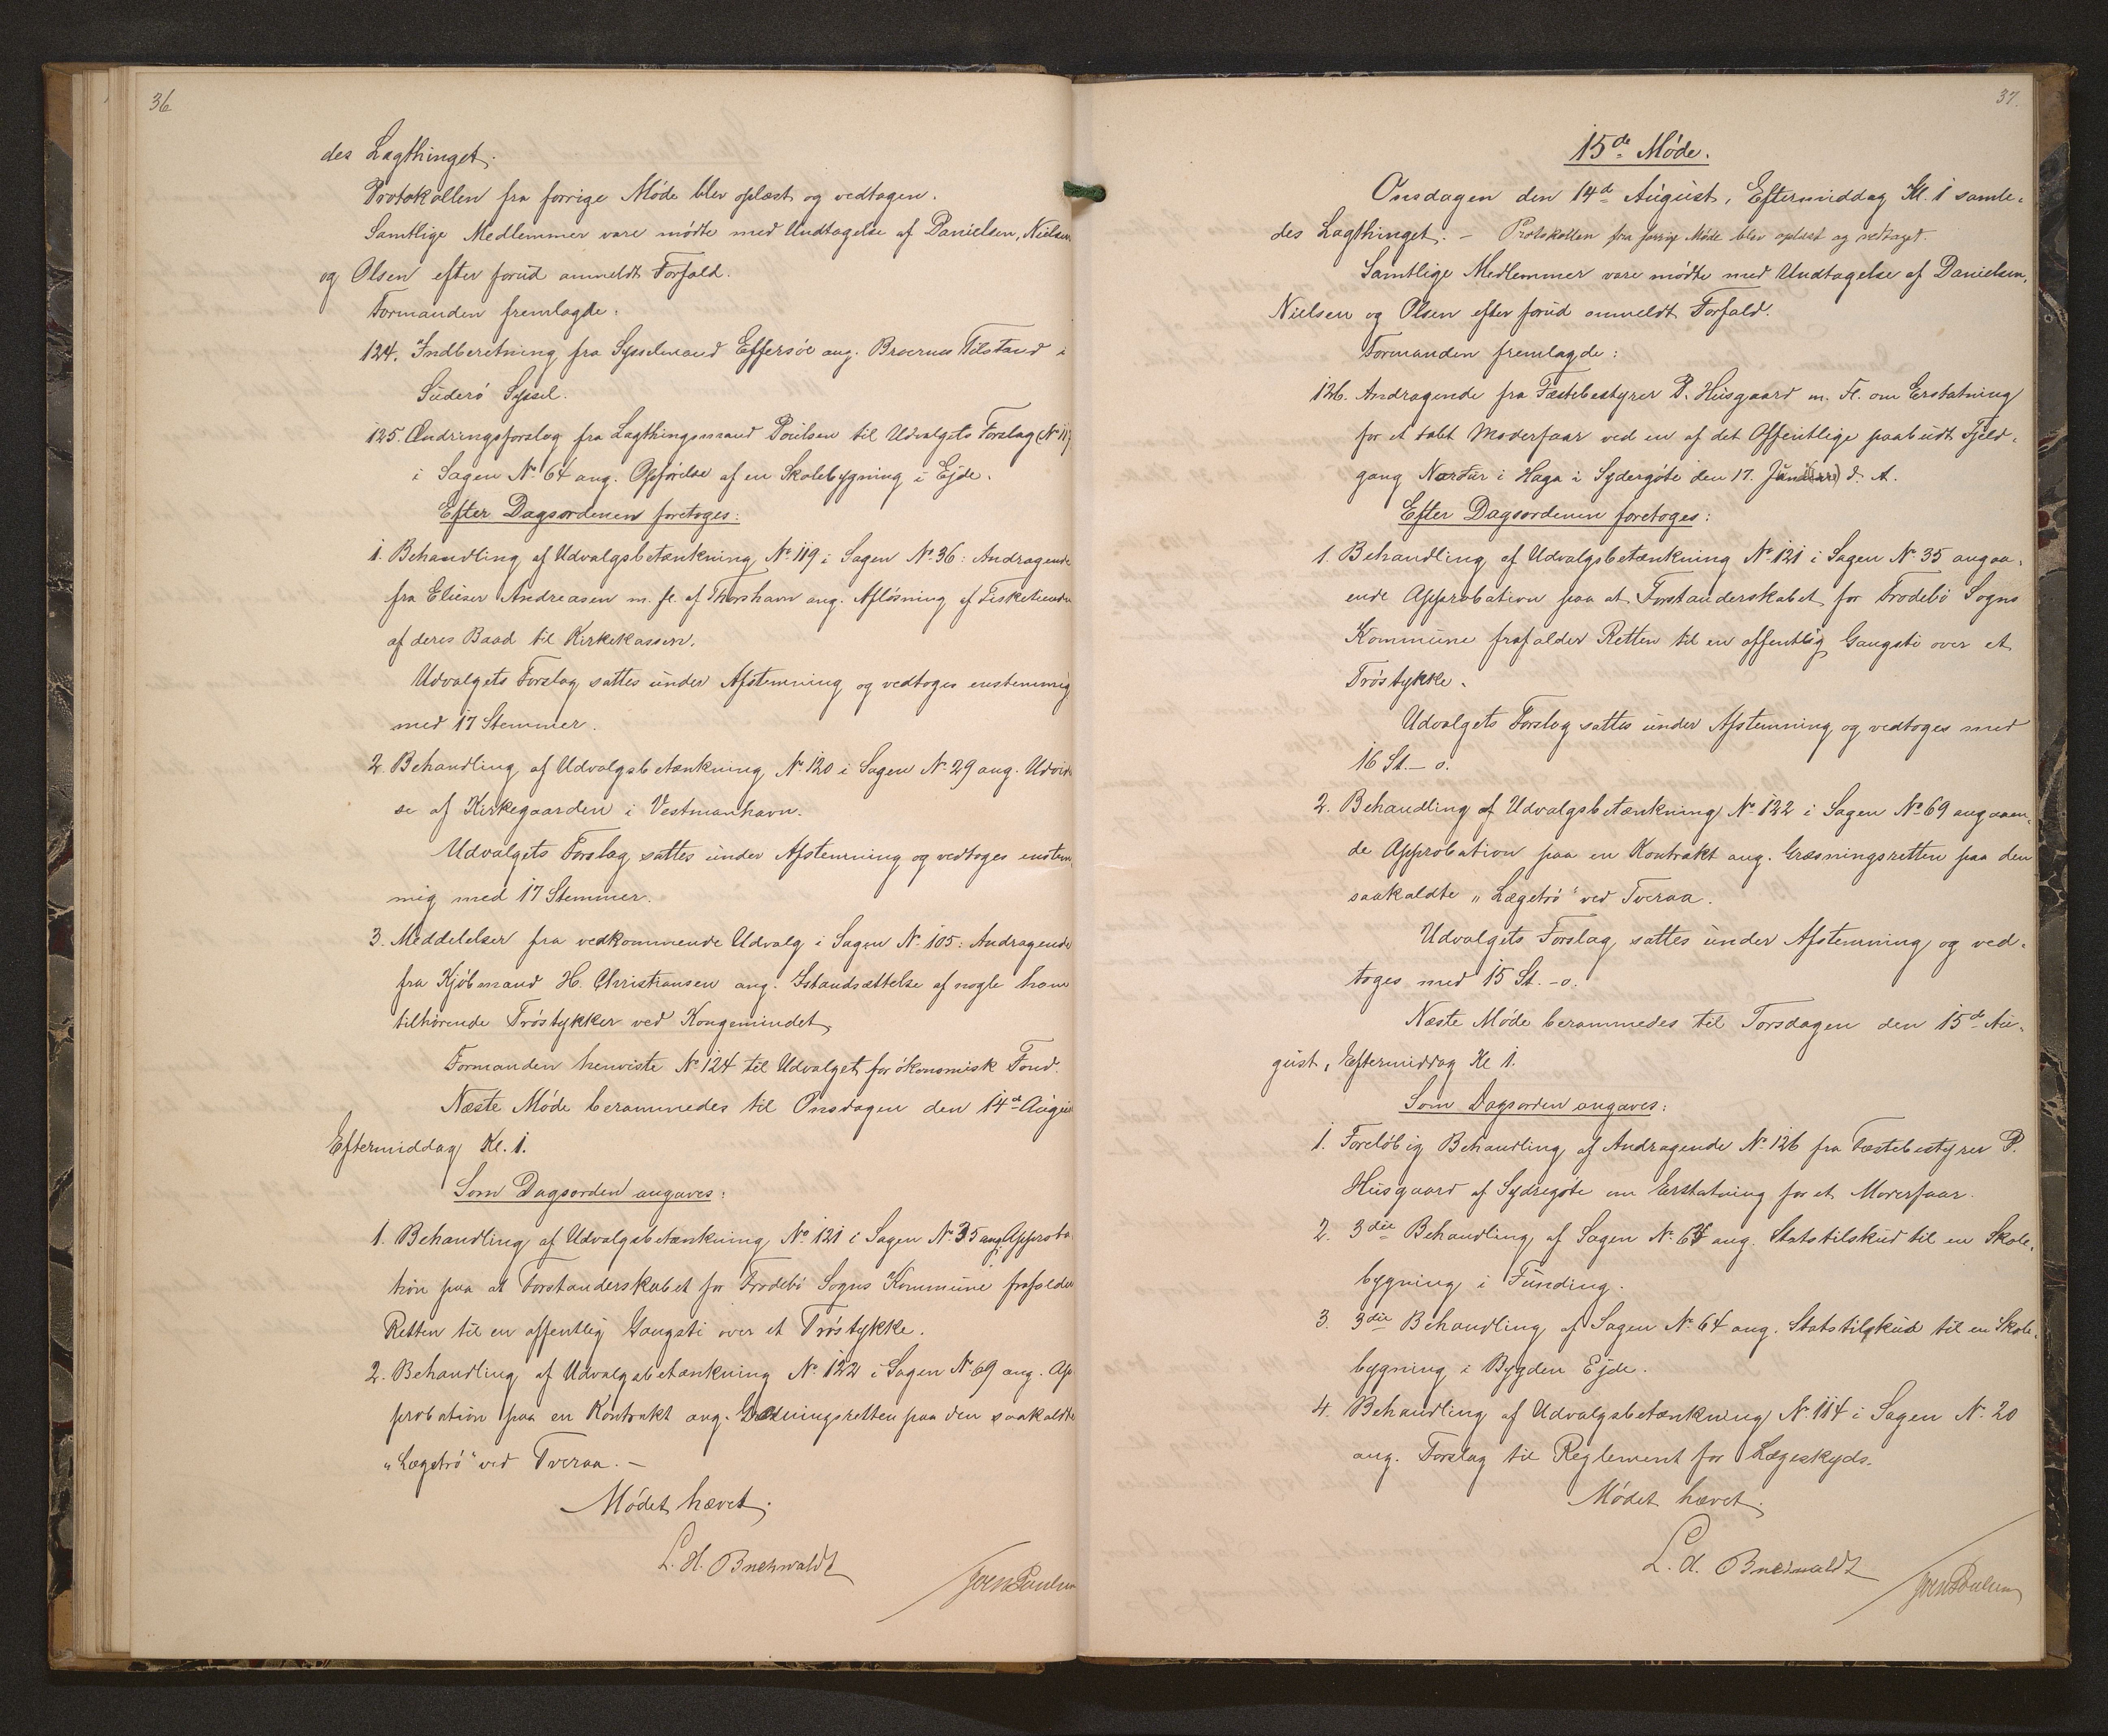 36
des Lagthinget.
Protokollen fra forrige Møde blev oplæst og vedtagen.
Samtlige Medlemmer vare mødte med Undtagelse af Danielsen, Nielsen
og Olsen efter forud anmeldt Forfald.
Formanden fremlagde.
124. Indberetning fra Sysselmand Effersøe ang. Broernes Tilstand i
Suderø Syssel.
125. Ændringsforslag fra Lagthingsmand Poulsen til Udvalgets Forslag (No 117)
i Sagen No 64 ang. Opførelse af en Skolebygning i Ejde.
Efter Dagsordenen foretoges:
1. Behandling af Udvalgsbetænkning No 119 i Sagen No 36: Andragende
fra Elieser Andreasen m. fl. af Thorshavn ang. Afløsning af Fisketiende
af deres Baad til Kirkekassen.
Udvalgets Forslag sattes under Afstemning og vedtoges enstemmig
med 17 Stemmer.
2. Behandling af Udvalgsbetænkning No 120 i Sagen No 29 ang. Udvidel
se af Kirkegaarden i Vestmanhavn.
Udvalgets Forslag sattes under Afstemning og vedtoges enstem
mig med 17 Stemmer.
3. Meddelelser fra vedkommende Udvalg i Sagen No 105: Andragende
fra Kjøbmand H. Christiansen ang. Istandsættelse af nogle ham
tilhørende Trøstykker ved Kongemindet
Formanden henviste No 124 til Udvalget for økonomisk Fond.
Næste Møde berammedes til Onsdagen den 14d August
Eftermiddag Kl. 1.
Som Dagsorden angaves:
1. Behandling af Udvalgsbetænkning No 121 i Sagen No 35 ang. Approba
tion paa at Forstanderskabet for Frodebø Sogns Kommune frafalder
Retten til en offentlig Gangsti over et Trøstykke.
2. Behandling af Udvalgsbetænkning No 122 i Sagen No 69 ang. Ap
probation paa en Kontrakt ang. Græsningsretten paa den saakaldte
"Lægetrø" ved Tveraa. -
Mødet hævet.
L. H. Buchwaldt
Joen Poulsen
37.
15de Møde.
Onsdagen den 14d August, Eftermiddag Kl. 1 samle-
des Lagthinget. - Protokollen fra forrige Møde blev oplæst og vedtaget.
Samtlige Medlemmer vare mødte med Undtagelse af Danielsen,
Nielsen og Olsen efter forud anmeldt Forfald.
Formanden fremlagde:
126. Andragende fra Fæstebestyrer P. Husgaard m. Fl. om Erstatning
for et tabt Moderfaar ved en af det Offentlige paabudt Fjeld-
gang Nordur i Haga i Sydergøte den 17. Januar d. A.
Efter Dagsordenen foretoges:
1. Behandling af Udvalgsbetænkning No 121 i Sagen No 35 angaa-
ende Approbation paa at Forstanderskabet for Frodebø Sogns
Kommune frafalder Retten til en offentlig Gangsti over et
Trøstykke.
Udvalgets Forslag sattes under Afstemning og vedtoges med
16 St. - 0.
2. Behandling af Udvalgsbetænkning No 122 i Sagen No 69 angaaen-
de Approbation paa en Kontrakt ang. Græsningsretten paa den
saakaldte "Lægetrø" ved Tveraa.
Udvalgets Forslag sattes under Afstemning og ved-
toges med 15 St. - 0.
Næste Møde berammedes til Torsdagen den 15de Au-
gust, Eftermiddag Kl 1.
Som Dagsorden angaves:
1. Foreløbig Behandling af Andragende No 126 fra Fæstebestyrer P.
Husgaard af Sydregøte om Erstatning for et Moderfaar.
2. 3die Behandling af Sagen No 63 ang. Statstilskud til en Skole-
bygning i Funding.
3. 3die Behandling af Sagen No 64 ang. Statstilskud til en Skole-
bygning i Bygden Ejde.
4. Behandling af Udvalgsbetænkning No 114 i Sagen No 20
ang. Forslag til Reglement for Lægeskyds.
Mødet hævet.
L. H. Buchwaldt
Joen Poulsen